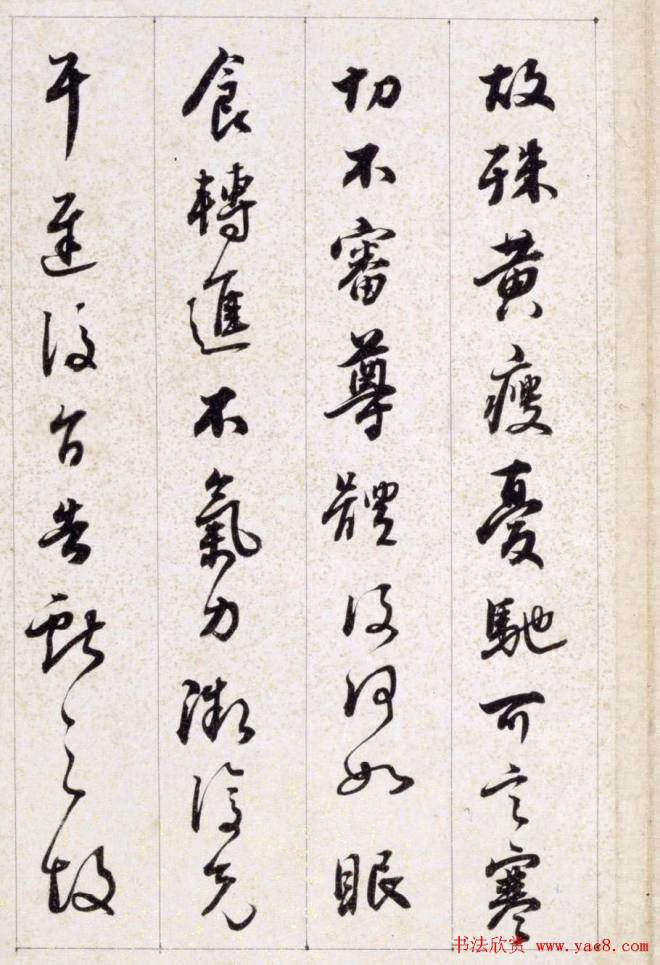 故殊黄瘦憂馳可言寒
切不審尊體復何如眠
食轉進不氣力漸復
遲復告獻之故
书法欣赏 www.yac8.com